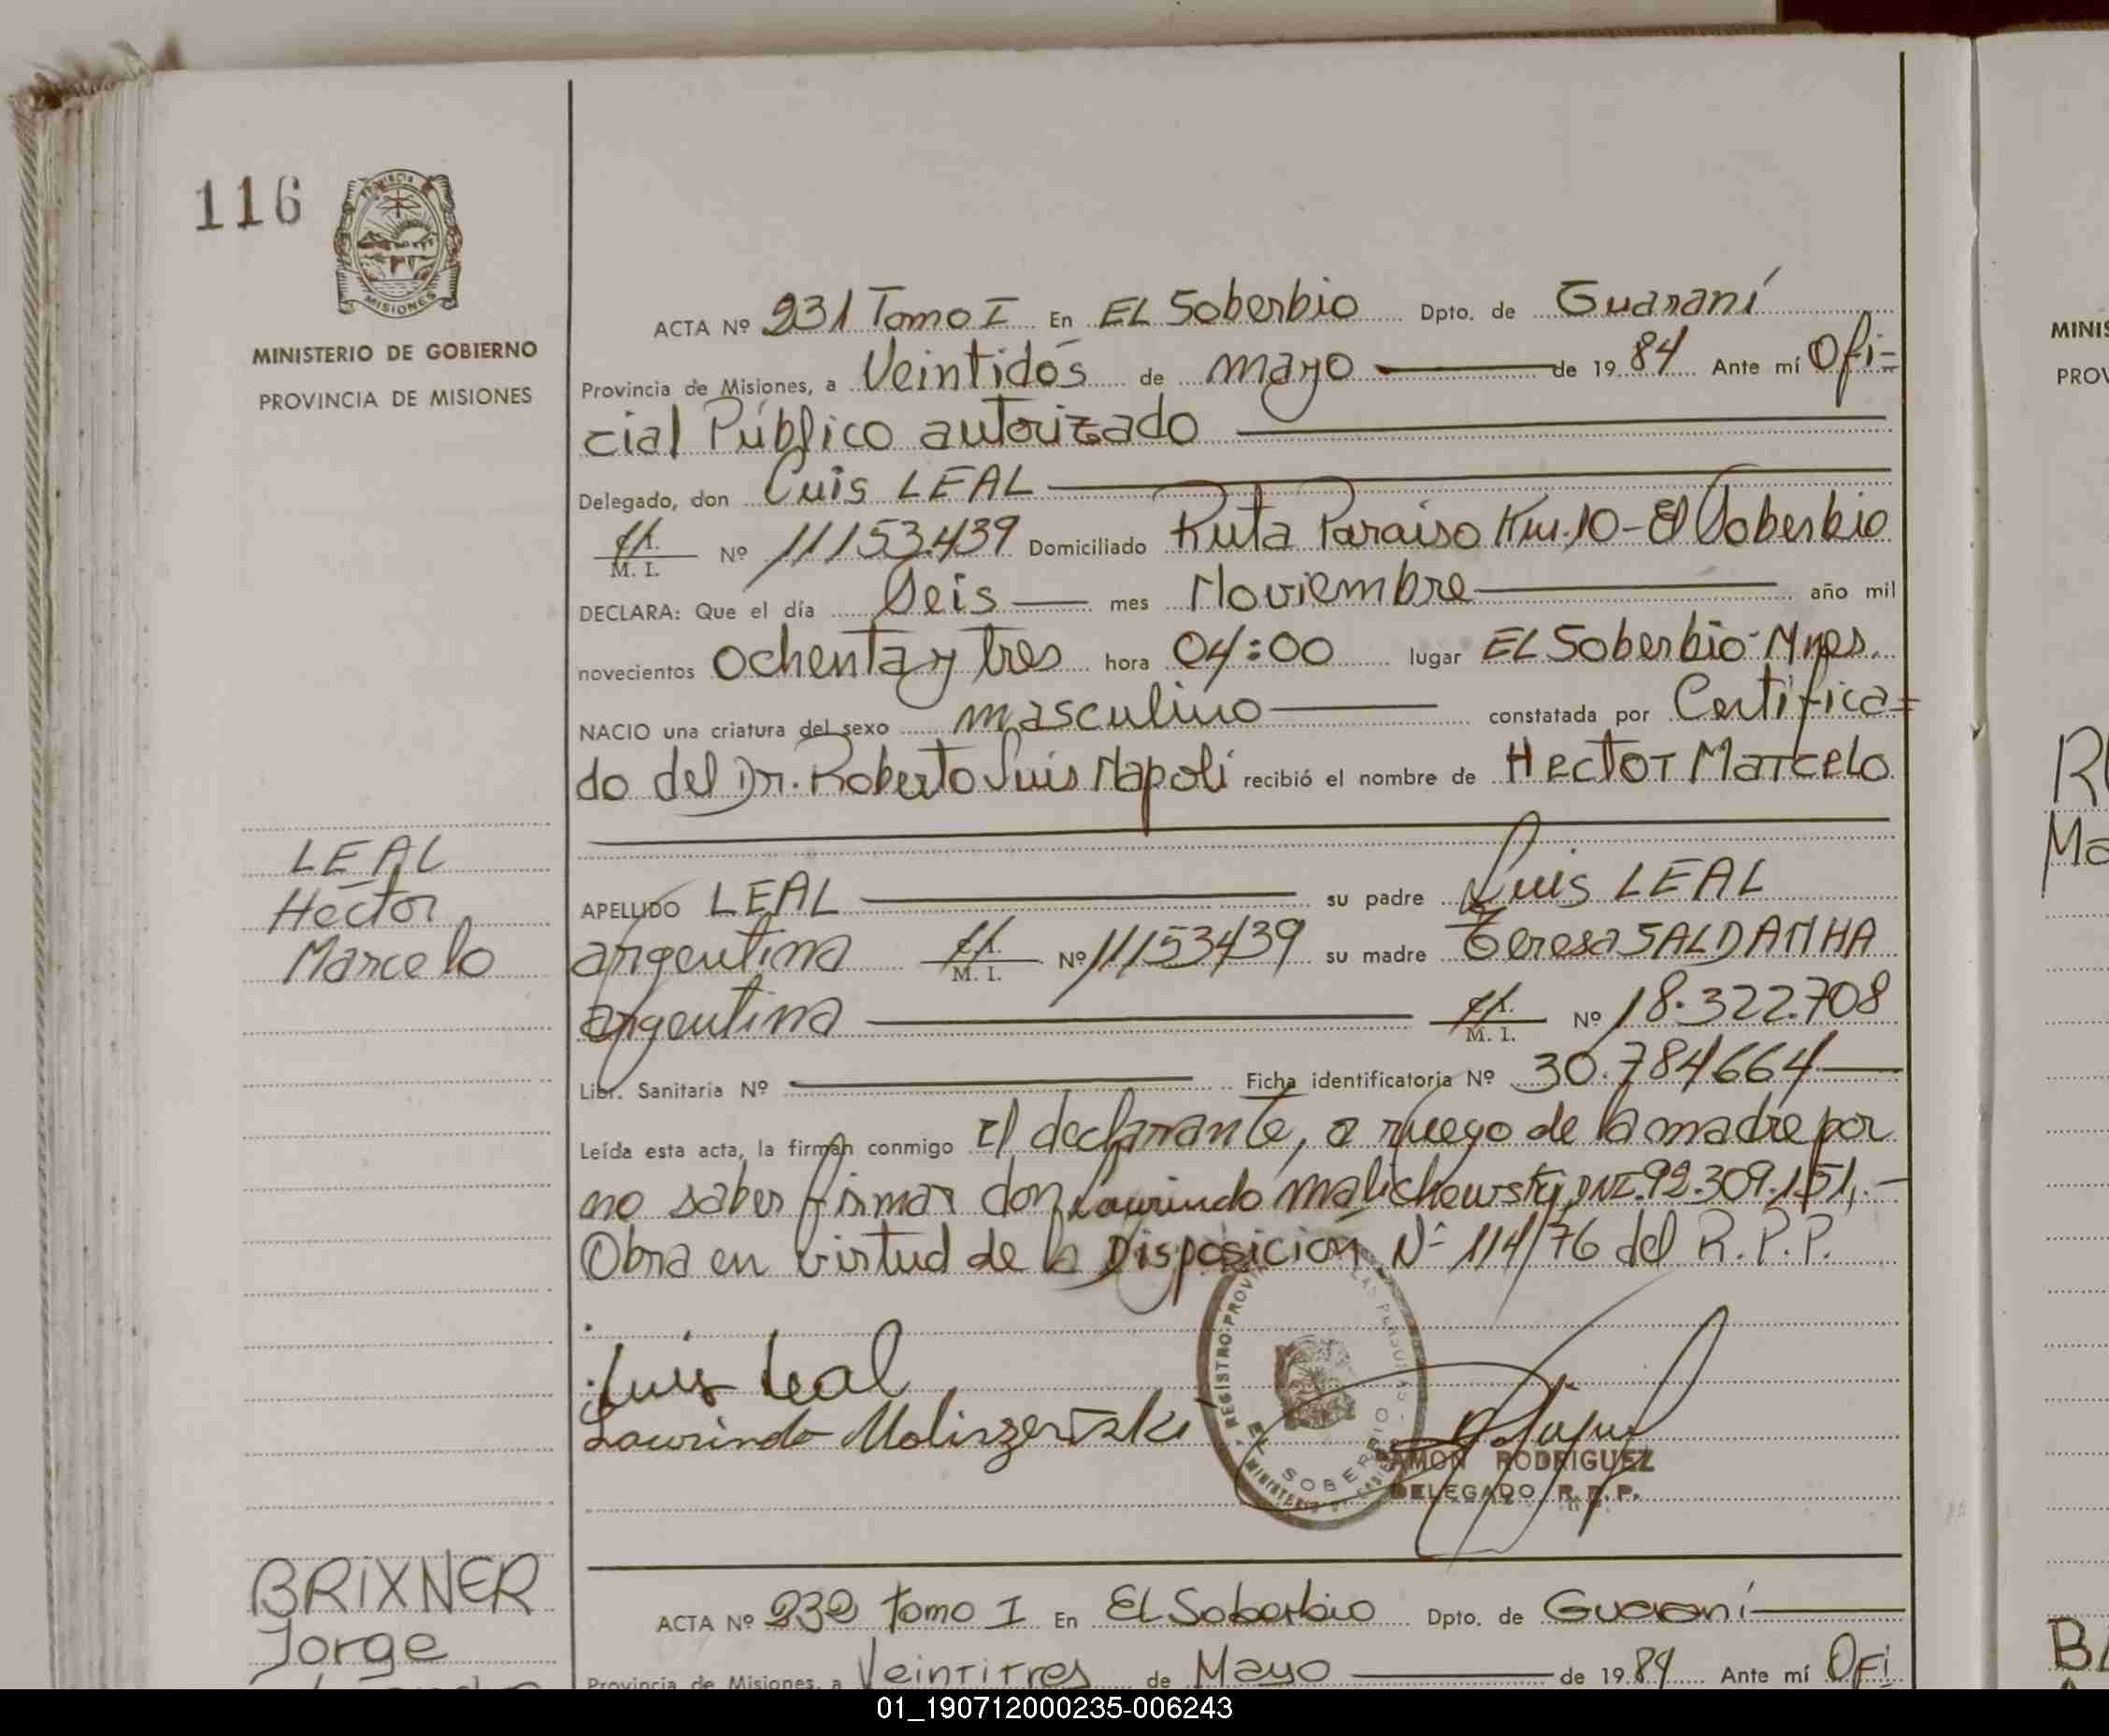 116
PROVINCIA
MISIONES
MINISTERIO DE GOBIERNO
PROVINCIA DE MISIONES
ACTA Nº 231 Tomo I En EL Soberbio Dpto. de Guaraní
Provincia de Misiones, a Veintidós de mayo de 1984 Ante mí Ofi-
cial Público autorizado
Delegado, don Luis LEAL
M. I. Nº 11153.439 Domiciliado Ruta Paraiso Km.10-El Soberbio
DECLARA: Que el día Seis mes Noviembre año mil
novecientos ochenta y tres hora 04:00 lugar EL Soberbio-Mnes.
NACIO una criatura del sexo masculino constatada por Certifica=
do del Dr. Roberto Luis Napoli recibió el nombre de HECTOR MARCELO
LEAL
Hector
Marcelo
APELLIDO LEAL su padre Luis LEAL
argentina M. I. Nº 11153439 su madre Teresa SALDANHA
argentina M. I. Nº 18.322.708
Libr. Sanitaria Nº Ficha identificatoria Nº 30.784664
Leída esta acta, la firman conmigo El declarante, a ruego de la madre por
no saber firmar don Laurindo Malichewsky, DNI.92.309.151,.-
Obra en virtud de la Disposición Nº 114/76 del R.P.P.
Luis Leal
Laurindo
REGISTRO PROVI LAS PERSONAS
EL SOBERBIO
RAMON RODRIGUEZ
DELEGADO R.P.P.
BRIXNER
Jorge
ACTA Nº 232 Tomo I En El Soberbio Dpto. de Guaraní
Provincia de Misiones, a Veintitres de Mayo de 1984 Ante mí Ofi
MINIS
PROV
Ma
01_190712000235-006243